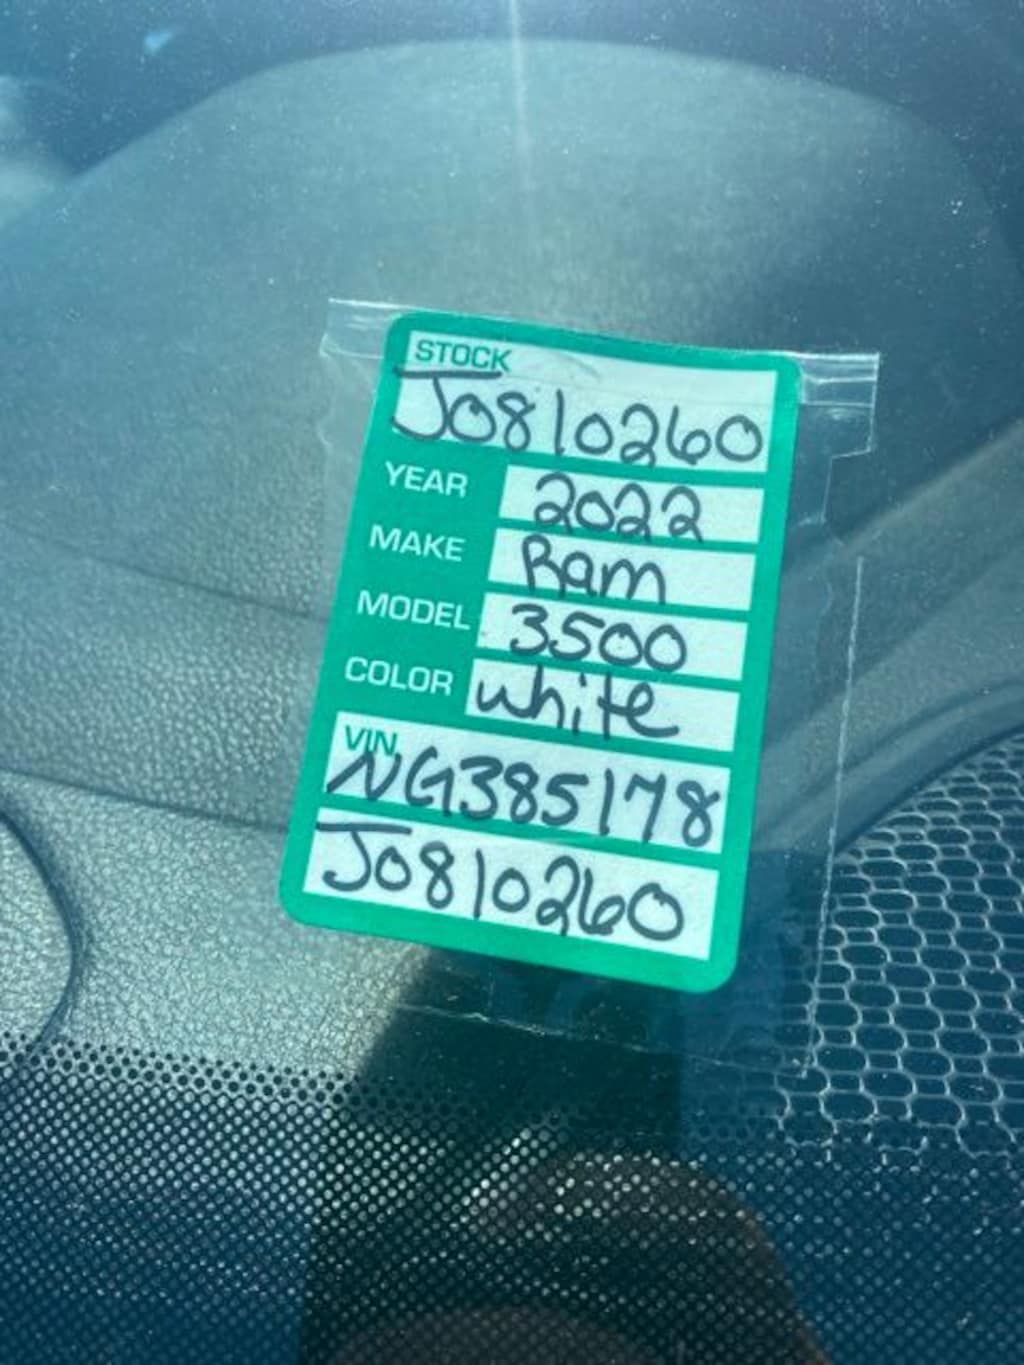 STOCK
J0810260
YEAR 2022
MAKE Ram
MODEL 3500
COLOR white
VIN
NG385178
J0810260